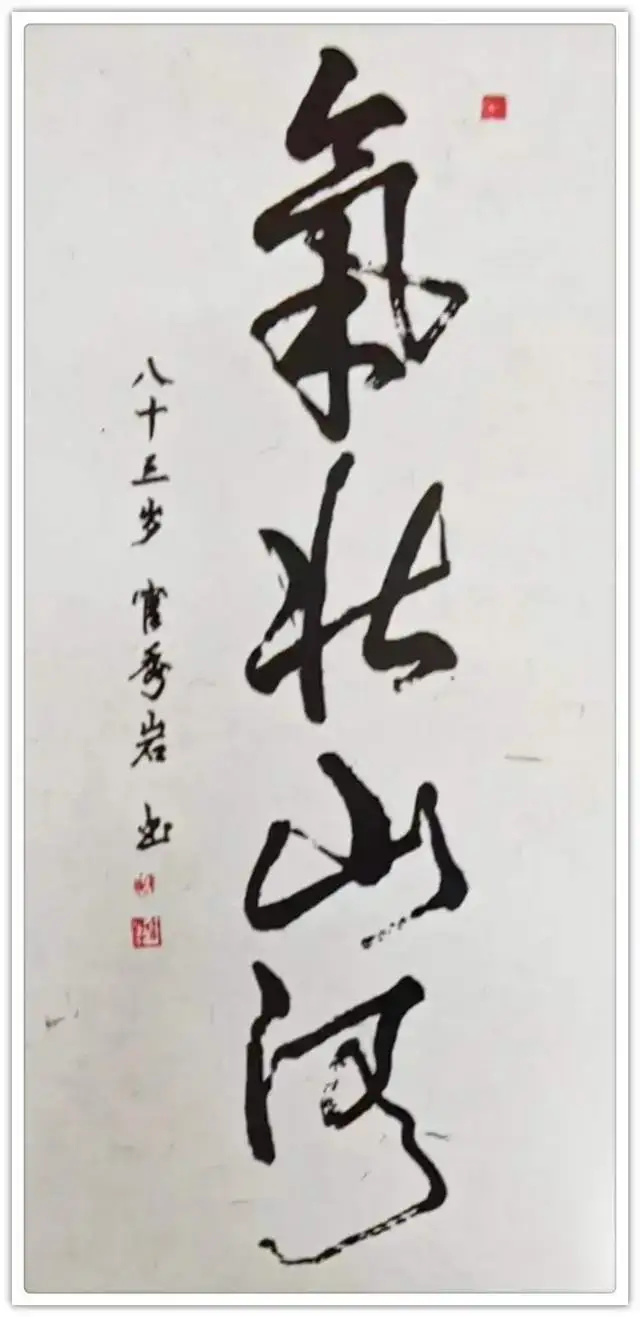 氣壮山河
八十三岁 霍秀岩 书